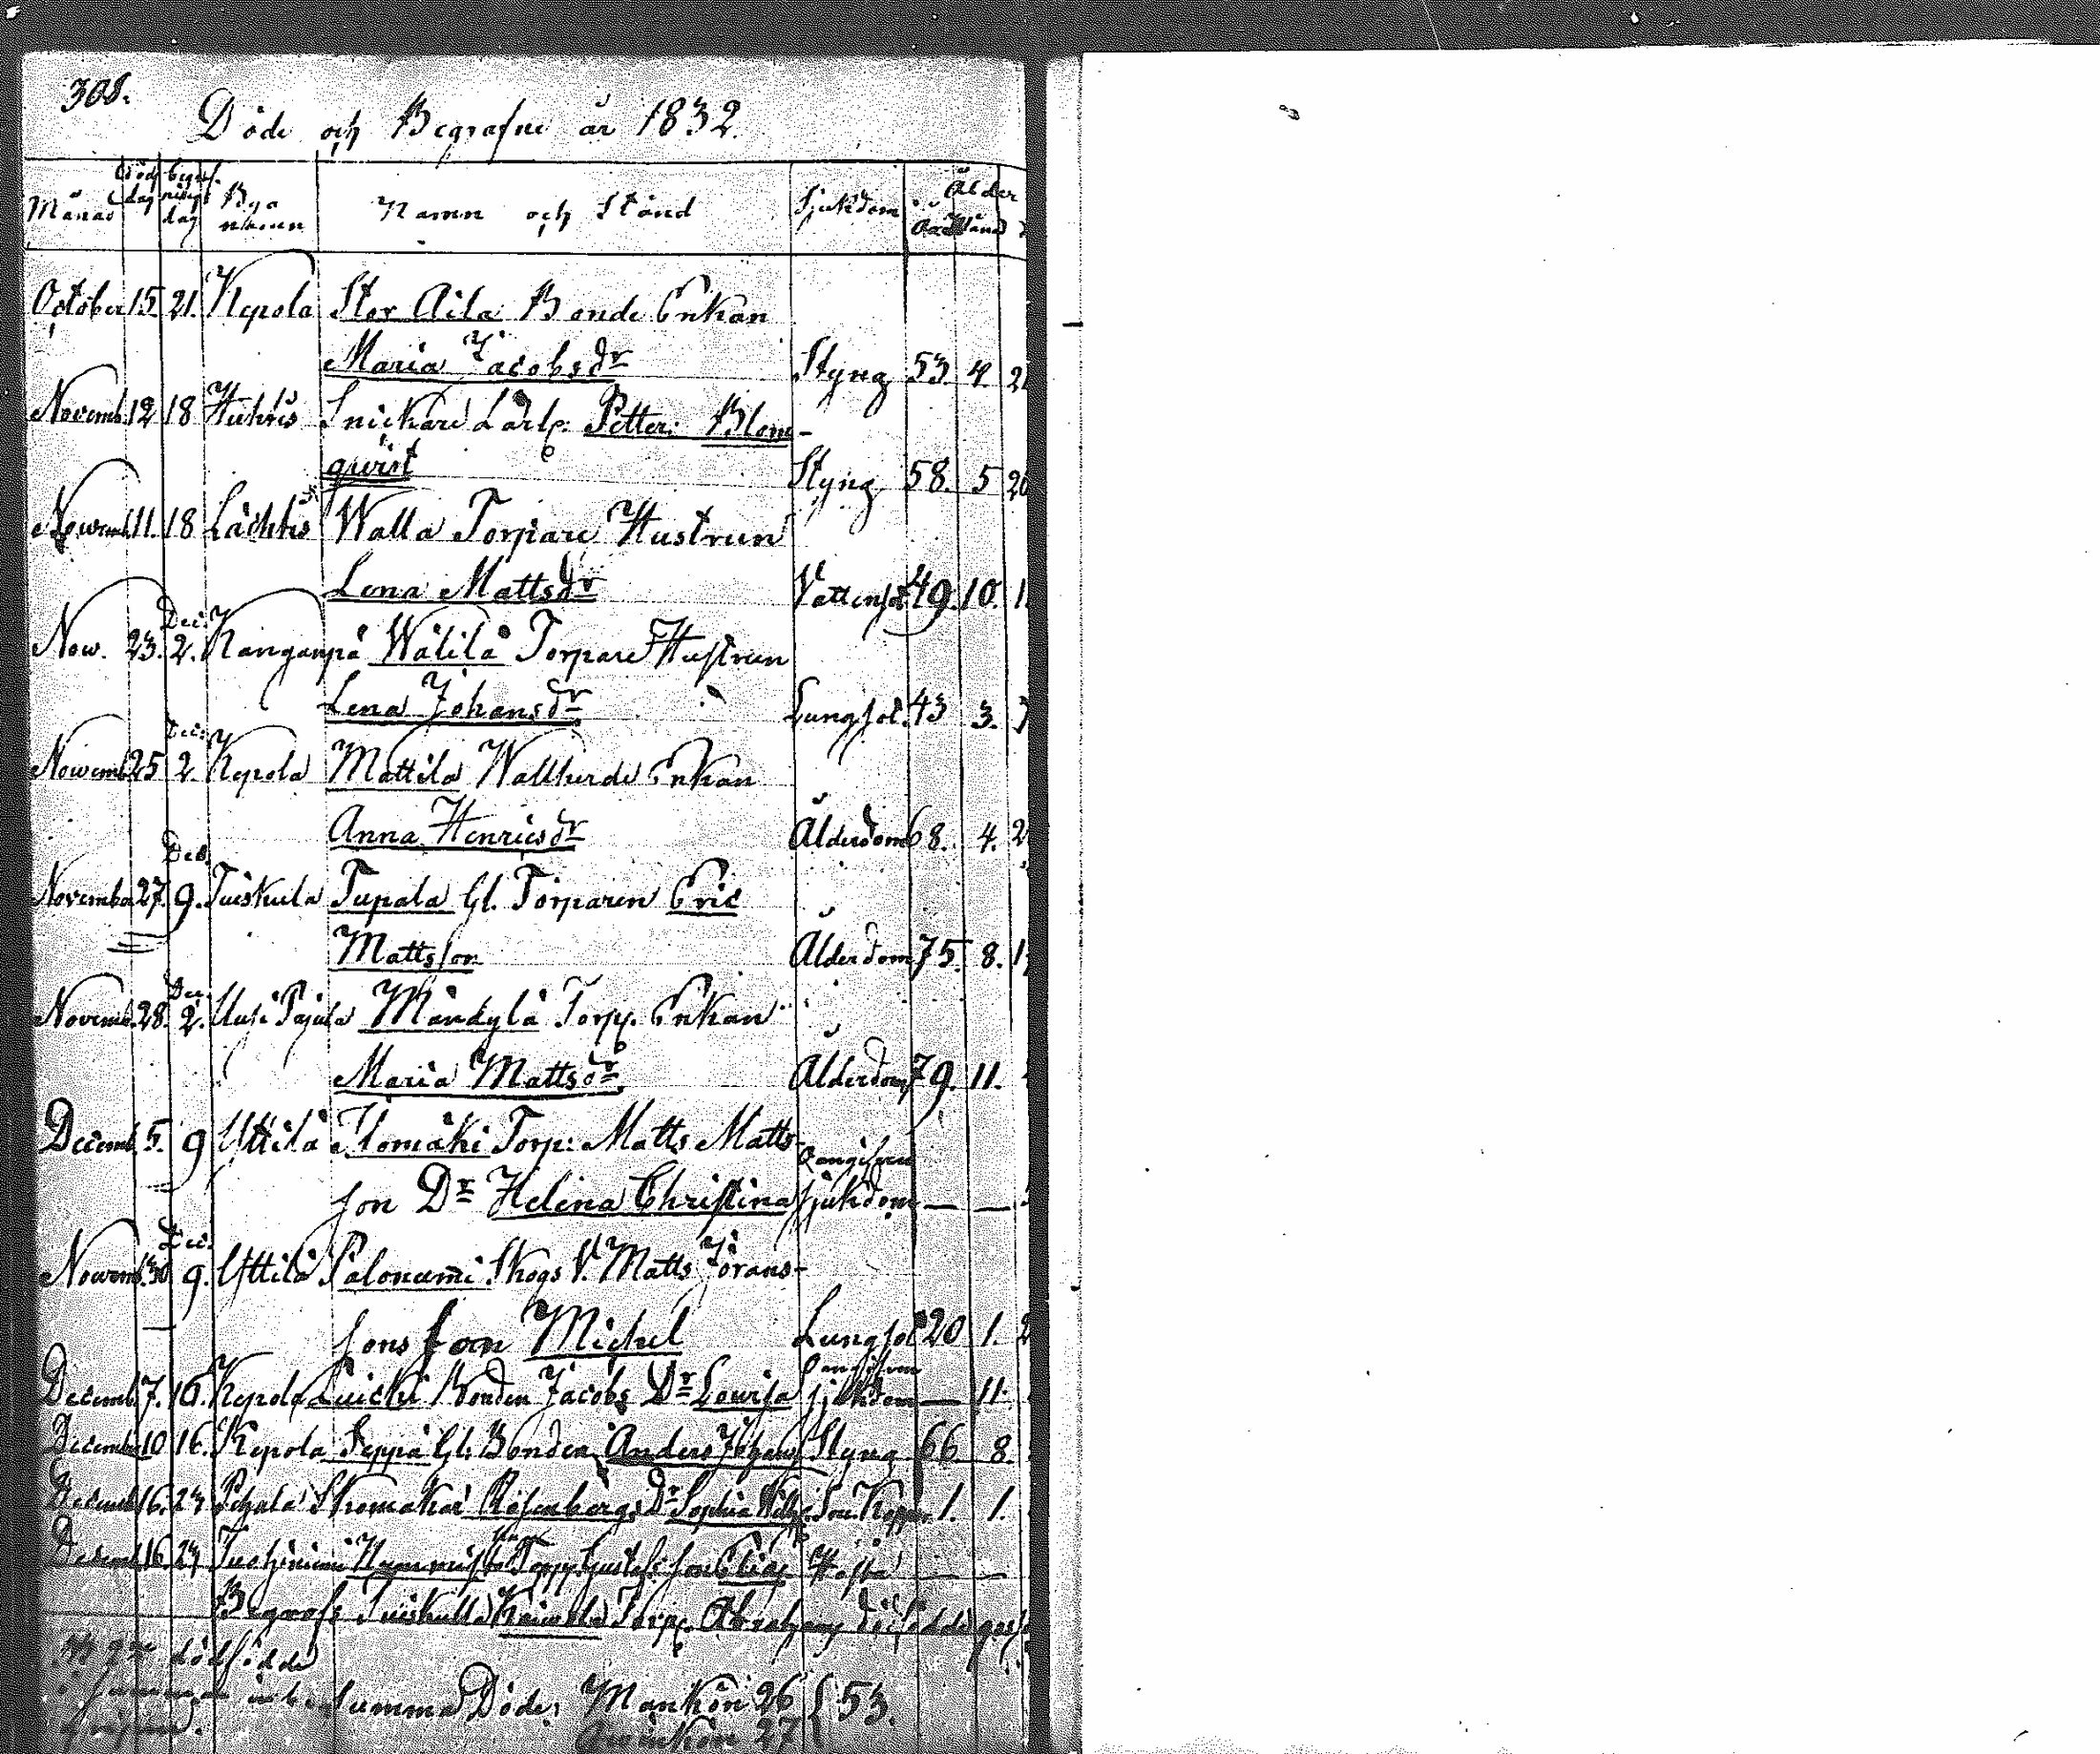 308.
Döde och Begrafne år 1832.
Månad död dag begrafnings dag Bya namn Namn och Stånd Sjukdom Ålder
År Månad
October 15. 21. Kepola Stor Aila Bonde Enkan
Maria Jacobsdr Styng 53. 4. 2
Novemb. 12 18 Huhtis Snickare Lärl: Petter: Blom-
qvist Styng 58. 5 20
Novemb. 11. 18 Lächtis Walla Torpare Hustrun
Lena Mattsdr Vattensot 49. 10. 1
Dec:
Nov. 23. 2. Kanganpä Wälilä Torpare Hustrun
Lena Johansdr Lungsot. 43 3.
Dec:
Novemb 25 2. Kepola Mattila Wallherde Enkan
Anna Henricsdr Ålderdom 68. 4. 2
Dec.
November 27. 9. Tuiskula Tupala Gl. Torparen Eric
Mattsson Ålderdom 75. 8. 1
Dec.
Novemb. 28. 2. Uusi Pajula Mändylä Torp. Enkan
Maria Mattsdr. Ålderdom 79. 11.
Decemb. 5. 9 Uttila Ilomäki Torp: Matts Matts-
son Dr Helena Christina sjukdom — —
Dec:
Novemb. 30 9. Uttila Palonumi Skogs V. Matts Jörans-
sons son Michel Lungsot 20 1. 2
Decemb. 7. 16. Kepola Bonden Jacobs Dr Lovisa sjukdom — 11.
Decembr 10 16. Kepola Seppä Gl: Bonden Anders Johans Styng 66 8.
Decemb. 16. 23. Skomakar Rosenbergs Dr Sophia 1. 1.
Decemb. 16 23 Torp. Gustafs son Elias — —
Begrofs Tuiskulla Torp. Abrahams
dödfödde
Summa Döde: Mankön 26 } 53.
Qvinkön 27